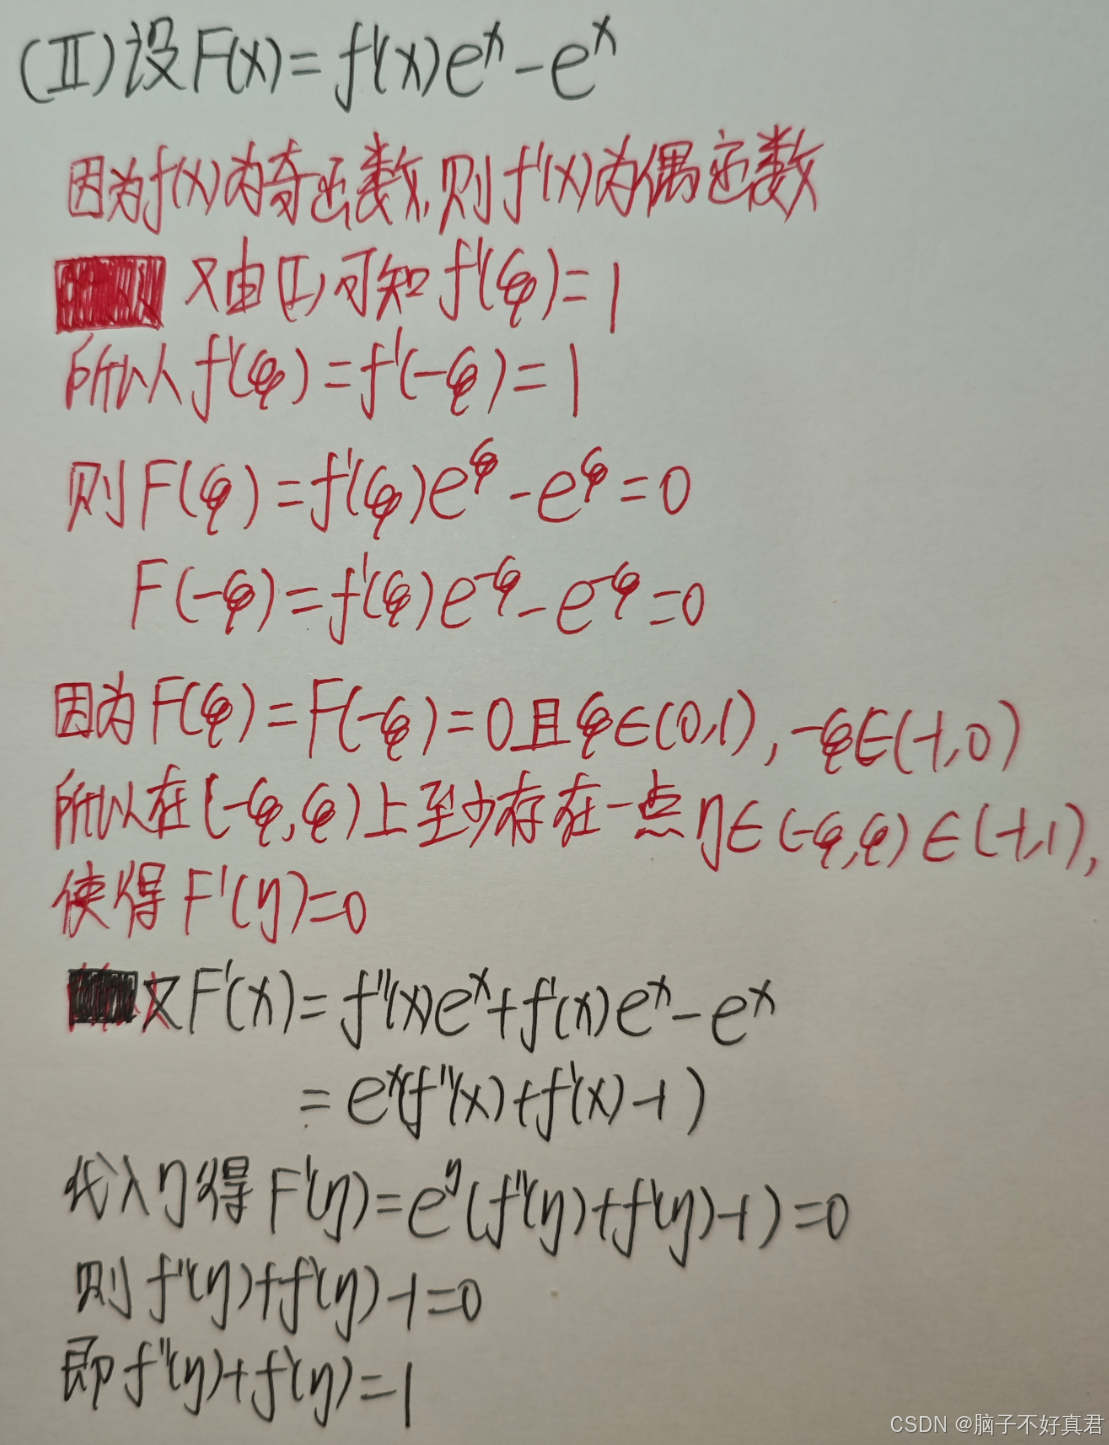 (Ⅱ)设F(x)=f'(x)eˣ-eˣ
因为f(x)为奇函数,则f'(x)为偶函数
又由(Ⅰ)可知f'(ξ)=1
所以f'(ξ)=f'(-ξ)=1
则F(ξ)=f'(ξ)e^ξ-e^ξ=0
F(-ξ)=f'(ξ)e^-ξ-e^-ξ=0
因为F(ξ)=F(-ξ)=0且ξ∈(0,1),-ξ∈(-1,0)
所以在(-ξ,ξ)上至少存在一点η∈(-ξ,ξ)∈(-1,1),
使得F'(η)=0
又F'(x)=f''(x)eˣ+f'(x)eˣ-eˣ
=eˣ(f''(x)+f'(x)-1)
代入η得F'(η)=e^η(f''(η)+f'(η)-1)=0
则f''(η)+f'(η)-1=0
即f''(η)+f'(η)=1
CSDN @脑子不好真君